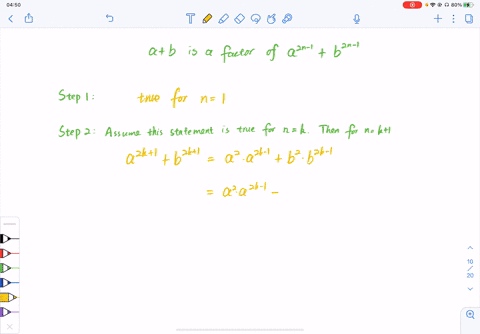 04:50
80%
a+b is a factor of a^{2n-1} + b^{2n-1}
Step 1: true for n=1
Step 2: Assume this statement is true for n=k. Then for n=k+1
a^{2k+1} + b^{2k+1} = a^2 · a^{2k-1} + b^2 · b^{2k-1}
= a^2 · a^{2k-1} –
10
/
20